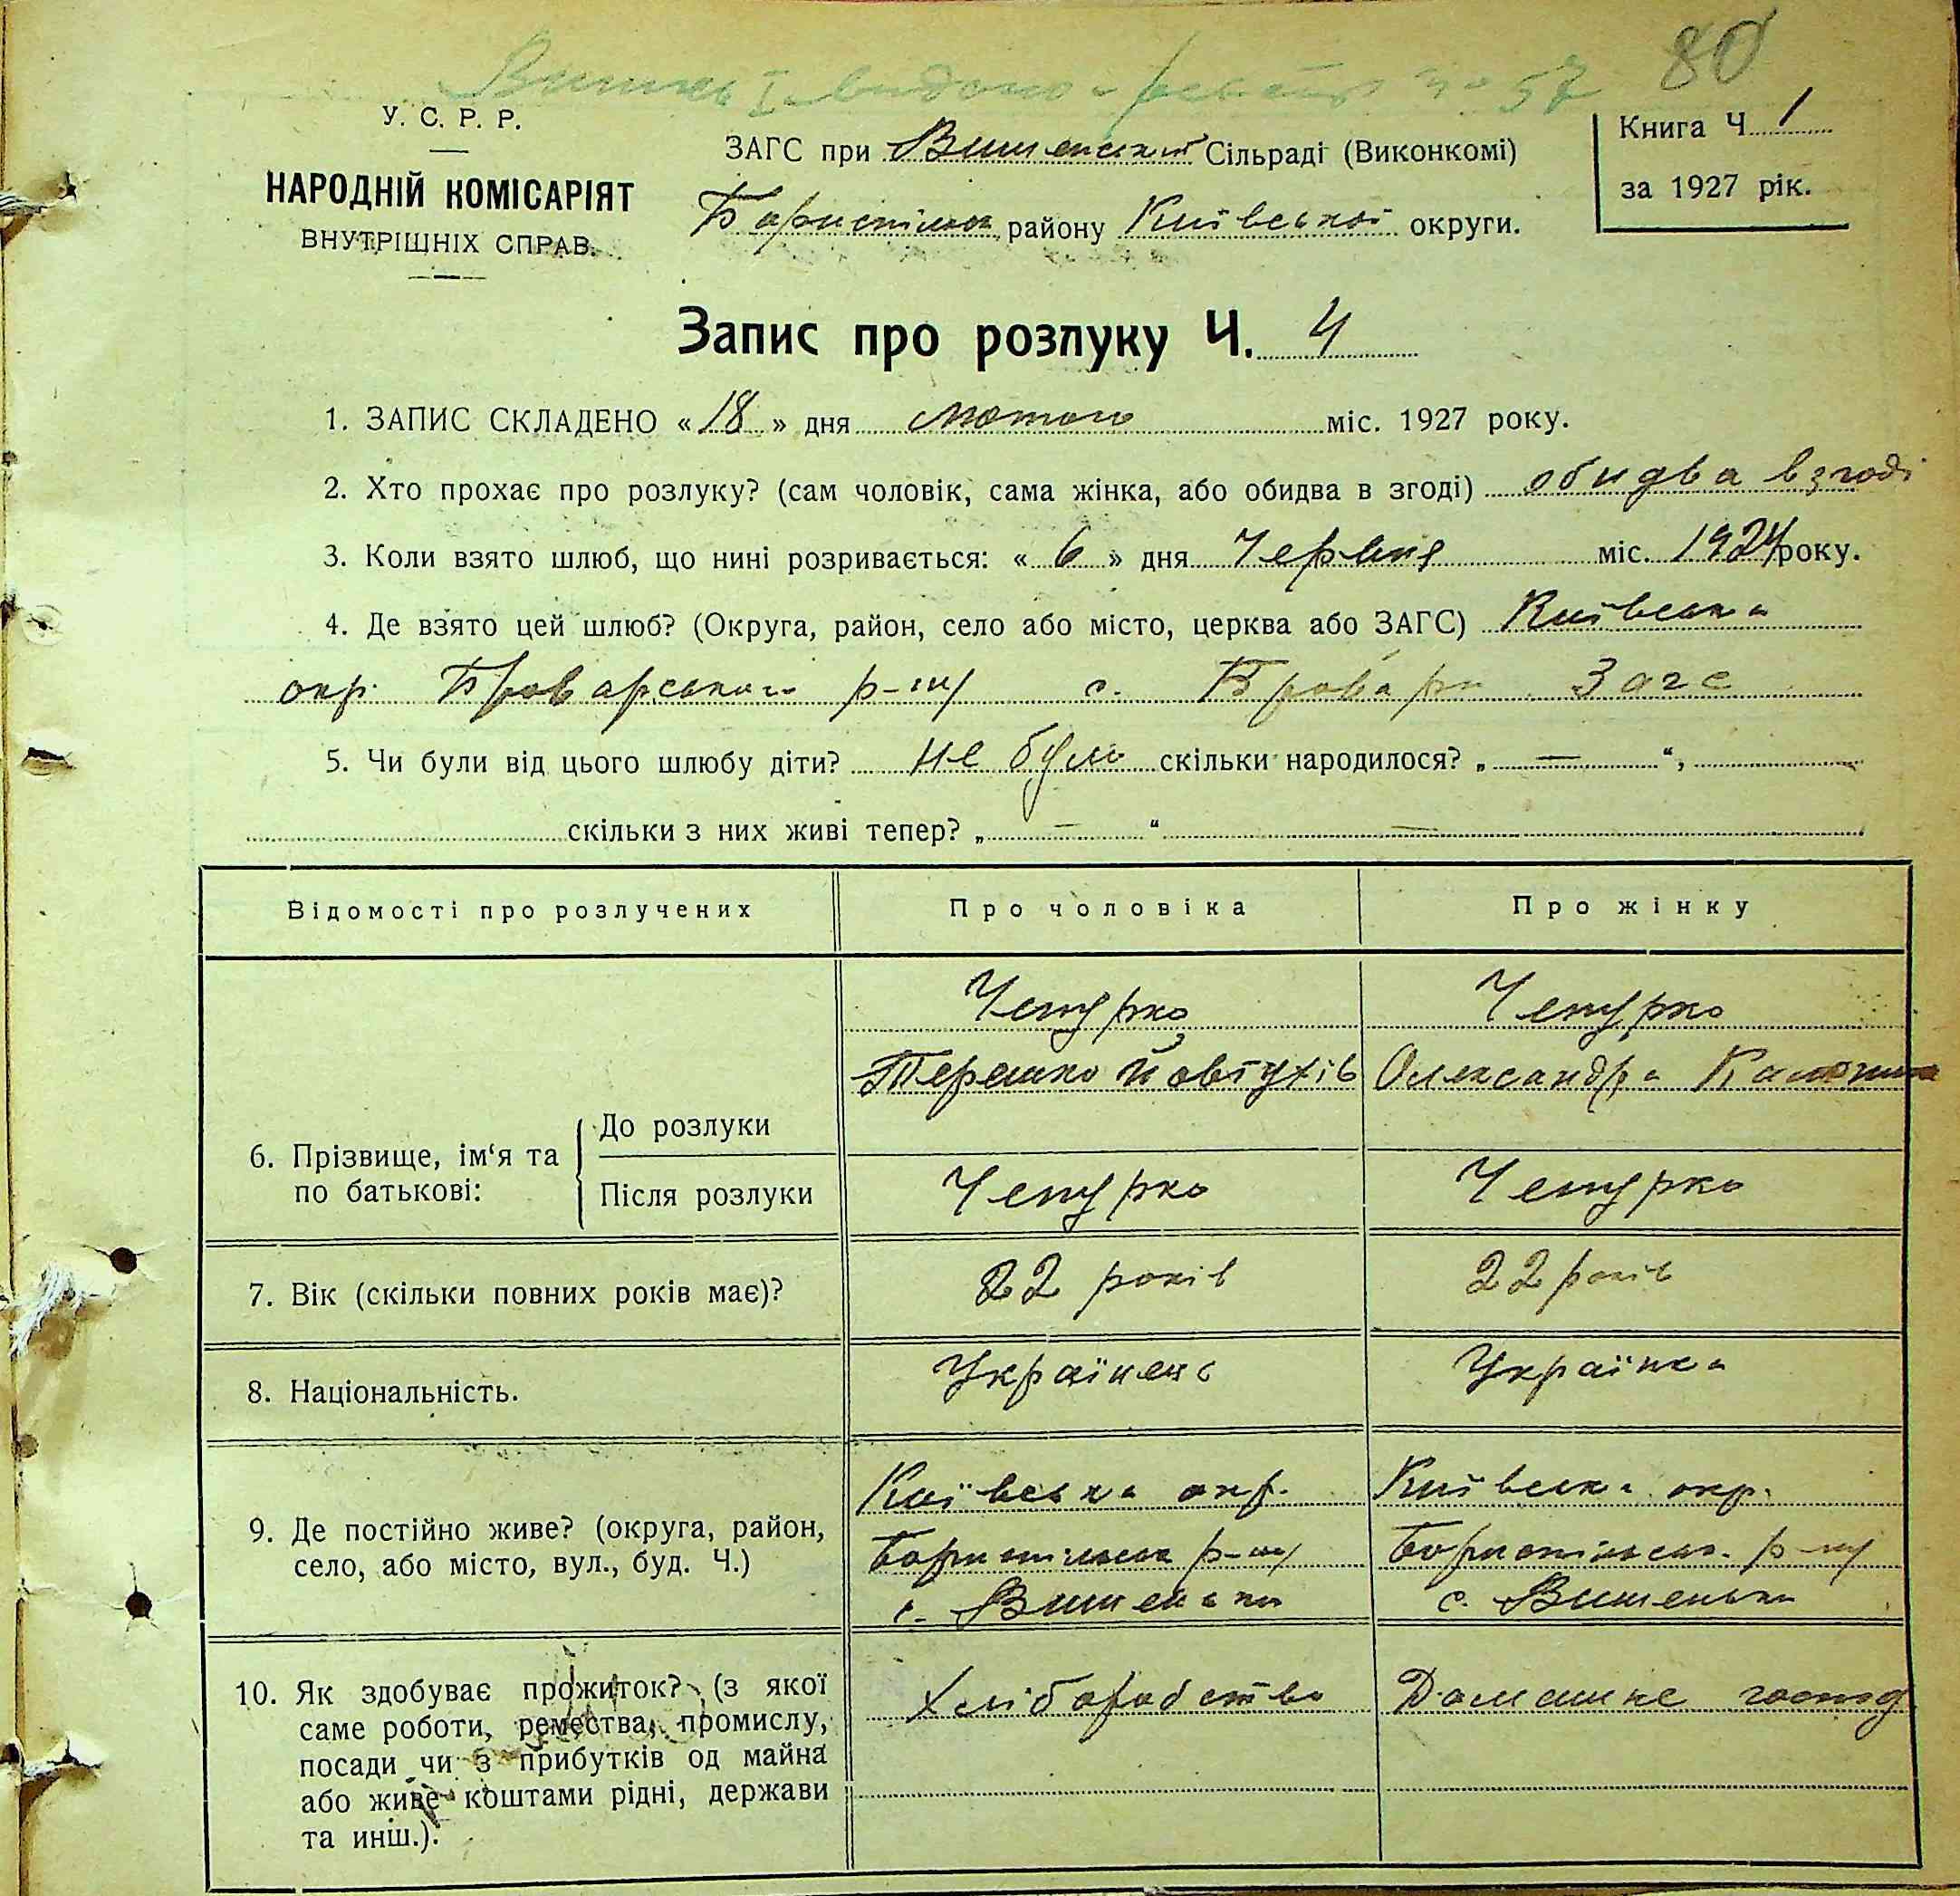 80
У. С. Р. Р.
НАРОДНІЙ КОМІСАРІЯТ
ВНУТРІШНІХ СПРАВ.
ЗАГС при Вишенській Сільраді (Виконкомі)
Бориспільськ району Київської округи.
Книга Ч. 1
за 1927 рік.
Запис про розлуку Ч. 4
1. ЗАПИС СКЛАДЕНО « 18 » дня лютого міс. 1927 року.
2. Хто прохає про розлуку? (сам чоловік, сама жінка, або обидва в згоді) обидва в згоді
3. Коли взято шлюб, що нині розривається: « 6 » дня Червня міс. 1924 року.
4. Де взято цей шлюб? (Округа, район, село або місто, церква або ЗАГС) Київська
окр. Броварського р-ну с. Бровари Загс
5. Чи були від цього шлюбу діти? не було скільки народилося? „ — “,
скільки з них живі тепер? „ — “ —
Відомості про розлучених Про чоловіка Про жінку
6. Прізвище, ім'я та по батькові:
До розлуки
Чепурко
Терешко Йовтухів
Чепурко
Олександра
Після розлуки Чепурко Чепурко
7. Вік (скільки повних років має)? 22 років 22 років
8. Національність. Українець Українка
9. Де постійно живе? (округа, район,
село, або місто, вул., буд. Ч.)
Київська окр.
Бориспільськ р-ну
с. Вишеньки
Київська окр.
Бориспільськ. р-ну
с. Вишеньки
10. Як здобуває прожиток? (з якої
саме роботи, ремества, промислу,
посади чи з прибутків од майна
або живе коштами рідні, держави
та инш.).
Хліборобство
Домашнє господ